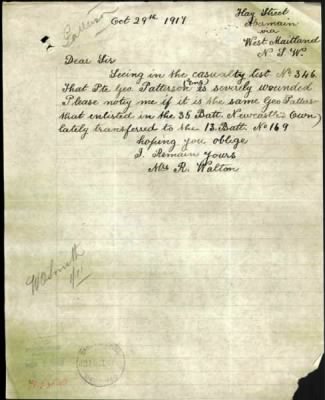 Patterson
Oct 29th 1917
Hay Street
via
West Maitland
N S W.
Dear Sir
Seeing in the casualty list No 346.
That Pte Geo. Patterson (Eng) is severly wounded
Please notiy me if it is the same Geo Patter
that enlisted in the 35 Batt. Newcastle Own)
lately transferred to the 13 Batt. No 169
hoping you oblige
I. Remain yours
Mrs R. Walton